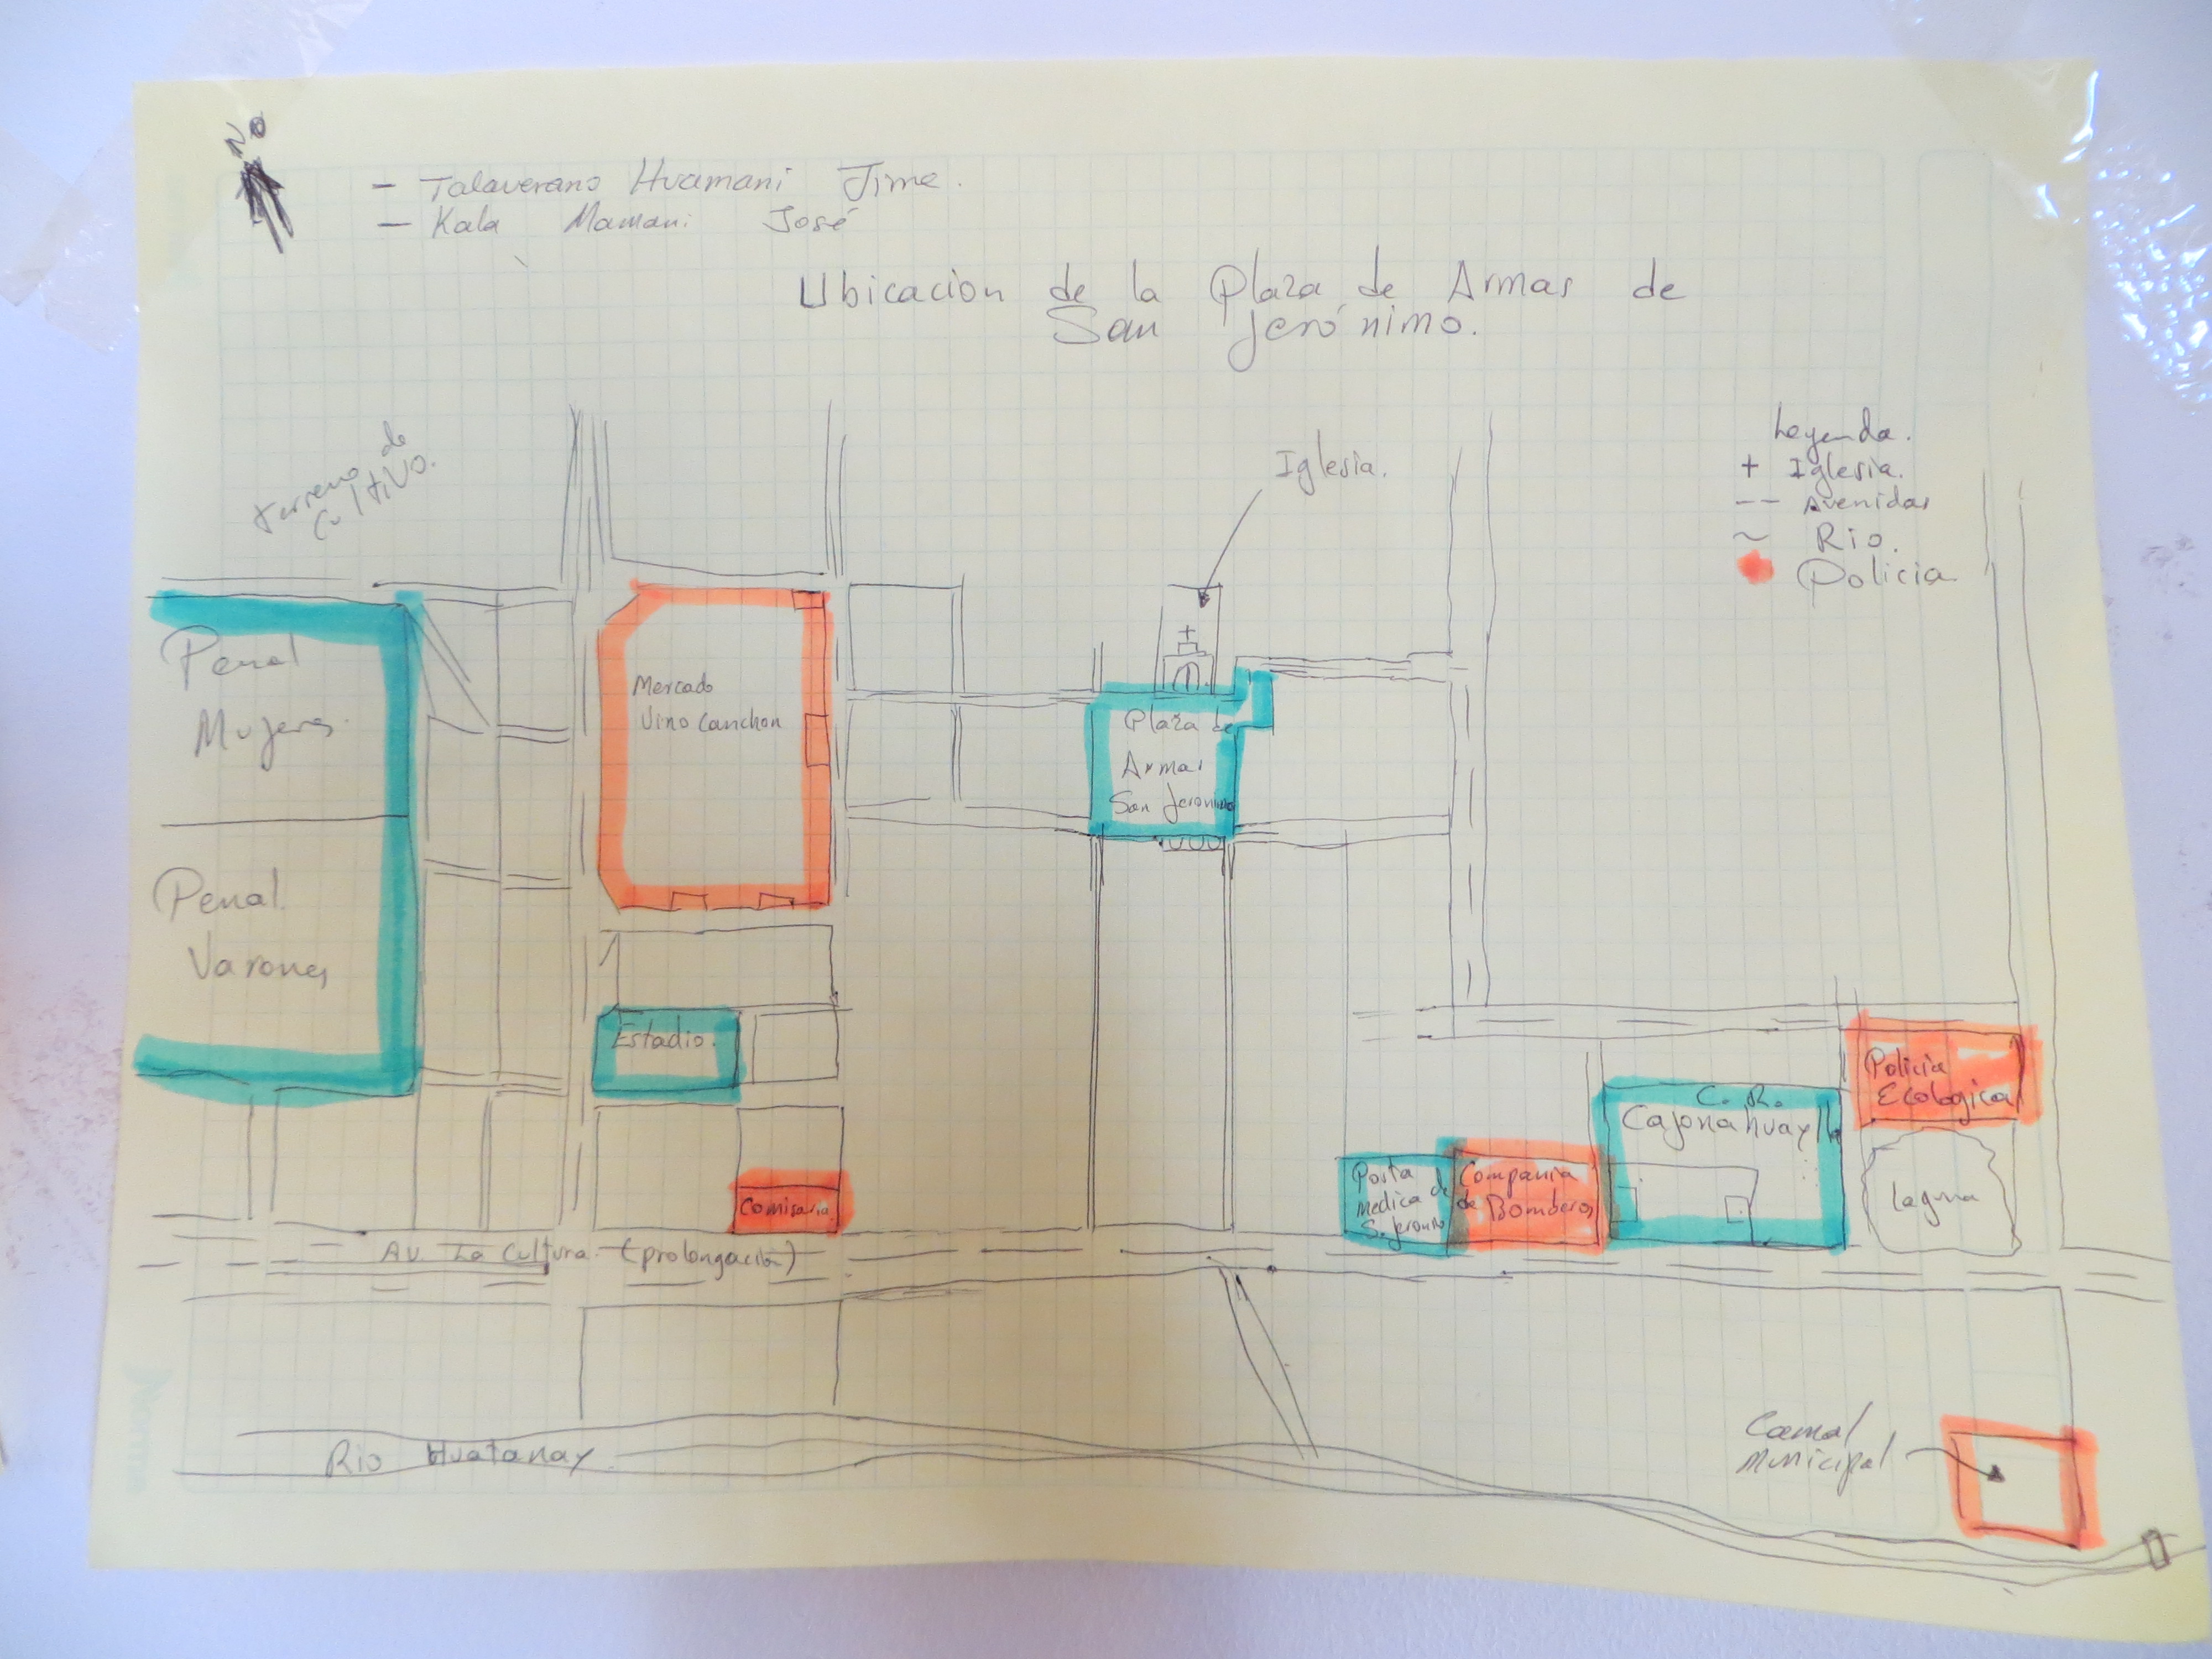 N
- Talaverano Huamani Jime.
- Kala Mamani José
Ubicacion de la Plaza de Armas de
San Jerónimo.
Leyenda.
+ Iglesia.
-- Avenidas
~ Rio.
Policia
terreno de
Cultivo.
Iglesia.
Penal
Mujeres.
Penal
Varones
Mercado
Vino Canchon
Plaza de
Armas
San Jeronimo
Estadio.
Comisaria
Posta
Medica de
S. Jeronimo
Compañia
de Bomberos
C. R.
Cajonahuaylla
Policia
Ecologica
laguna
Av. La Cultura (prolongación)
Rio Huatanay
Camal
Municipal